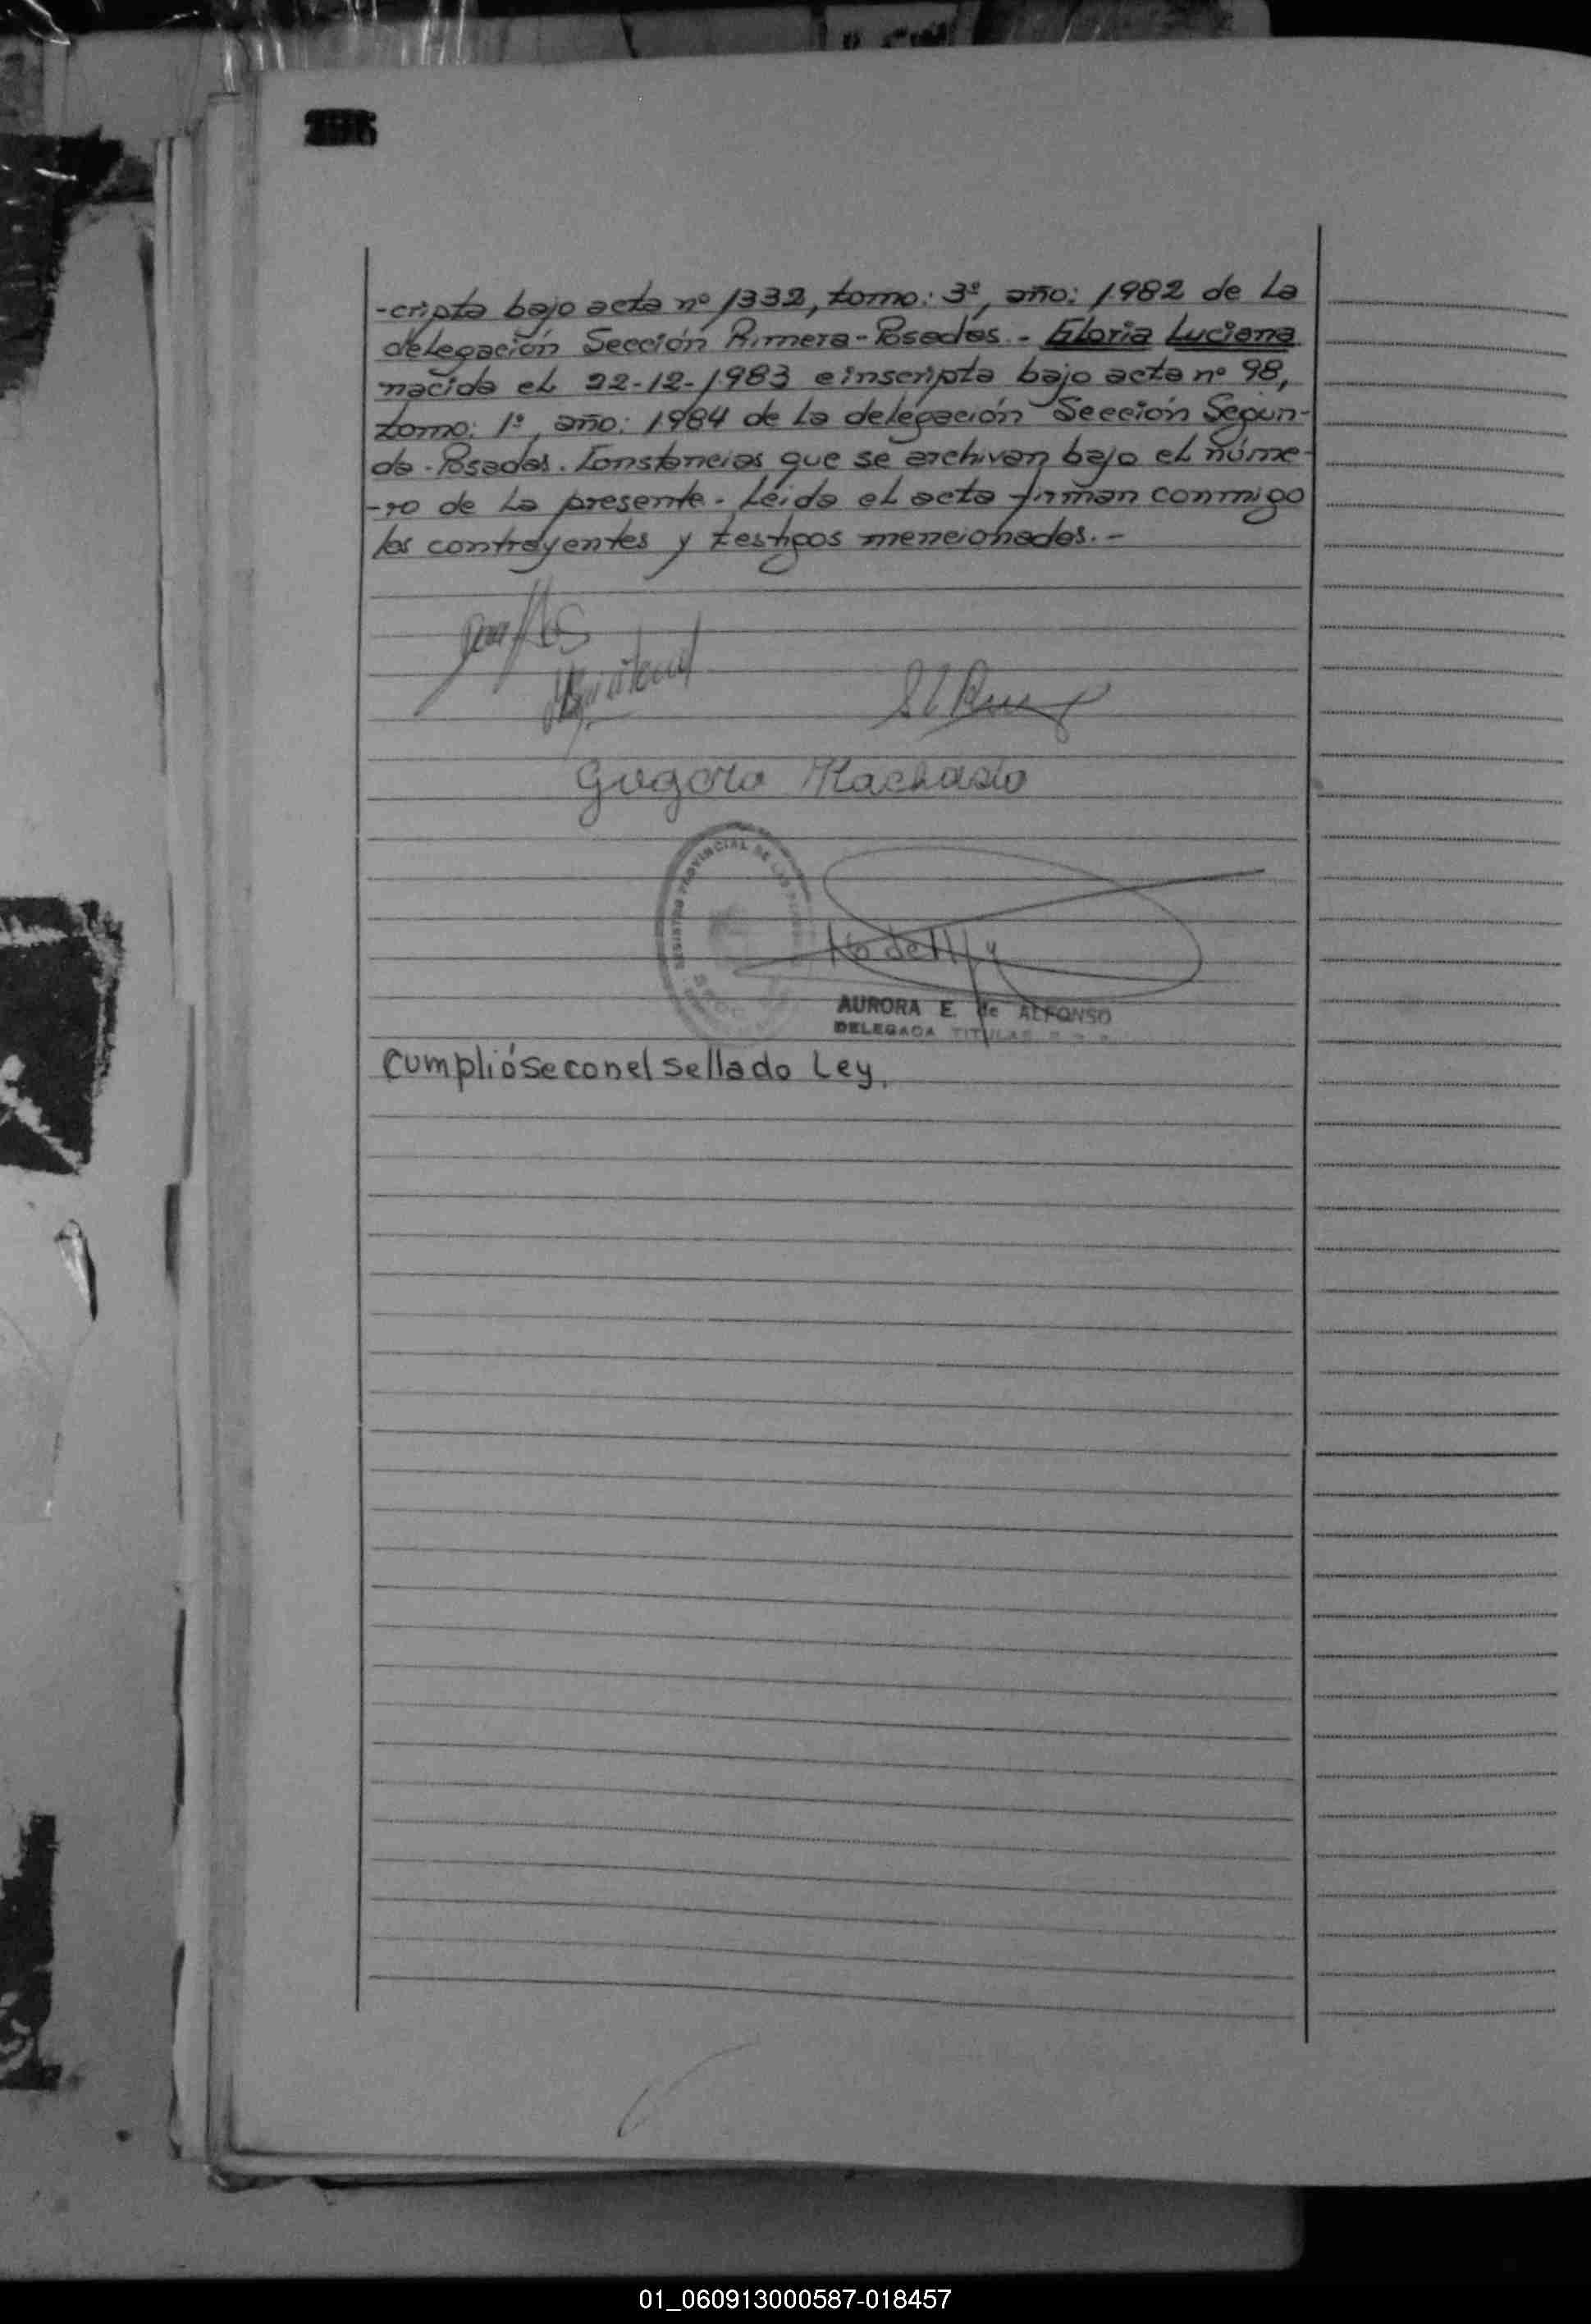 -cripta bajo acta nº 1332, tomo: 3º, año: 1982 de la
delegación Sección Primera-Posadas.- Gloria Luciana
nacida el 22-12-1983 e inscripta bajo acta nº 98,
tomo: 1º, año: 1984 de la delegación Sección Segun-
da-Posadas. Constancias que se archivan bajo el núme-
-ro de la presente.- Leída el acta firman conmigo
los contrayentes y testigos mencionados.-
Machado
REGISTRO PROVINCIAL DE LAS
AURORA E. de ALFONSO
DELEGADA TITULAR
Cumplióse con el sellado Ley.
01_060913000587-018457